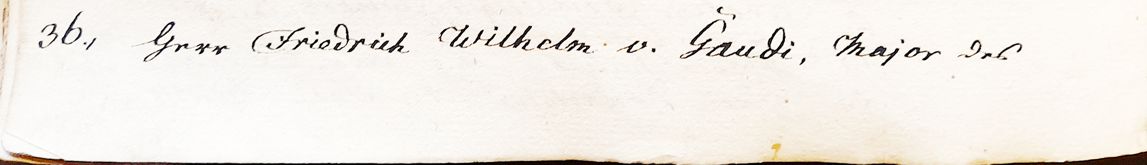 36., Herr Friedrich Wilhelm v. Gaudi, Major des